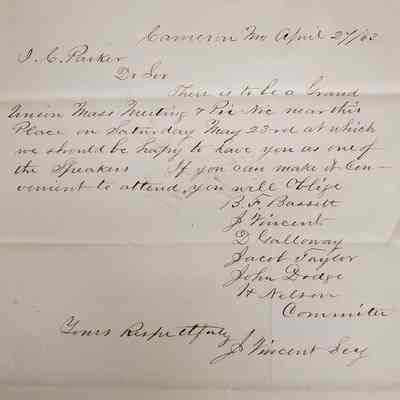 Cameron Mo April 27/63
I. C. Parker
Dr Sir
There is to be a Grand
Union Mass Meeting & Pic Nic near this
Place on Saturday May 23rd at which
we should be happy to have you as one of
the Speakers If you can make it con-
venient to attend, you will Oblige
B. F. Bassitt
J Vincent
D Galloway
Jacob Taylor
John Dodge
H Nelson
Committee
Yours Respectfully
J Vincent Secy